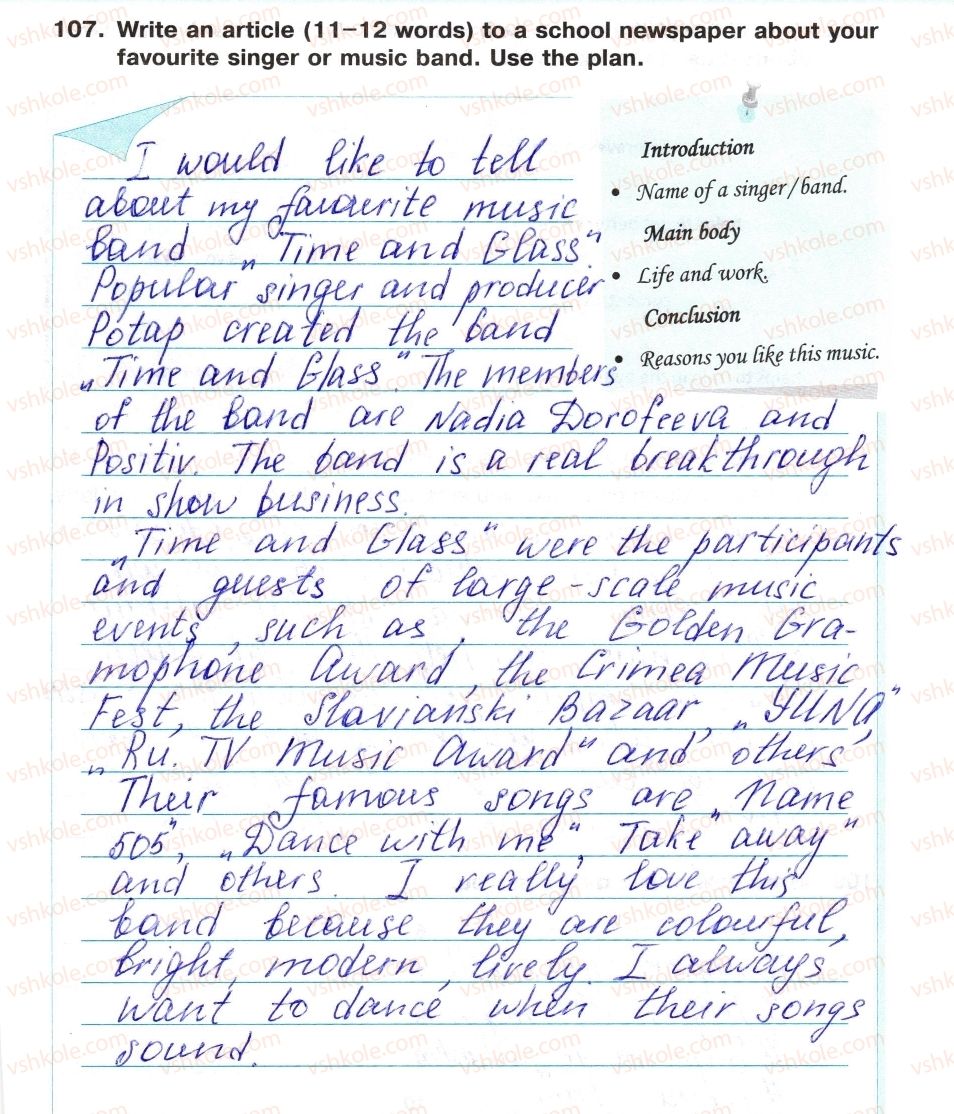 107. Write an article (11–12 words) to a school newspaper about your
favourite singer or music band. Use the plan.
Introduction
• Name of a singer/band.
Main body
• Life and work.
Conclusion
• Reasons you like this music.
I would like to tell
about my favourite music
band „Time and Glass“.
Popular singer and producer
Potap created the band
„Time and Glass“. The members
of the band are Nadia Dorofeeva and
Positiv. The band is a real breakthrough
in show business.
„Time and Glass“ were the participants
and guests of large-scale music
events, such as, the Golden Gra-
mophone Award, the Crimea Music
Fest, the Slavianski Bazaar, „YUNA“,
„Ru. TV Music Award“ and others.
Their famous songs are „Name
505“, „Dance with me“, „Take away“
and others. I really love this
band because they are colourful,
bright, modern, lively. I always
want to dance when their songs
sound.
vshkole.com